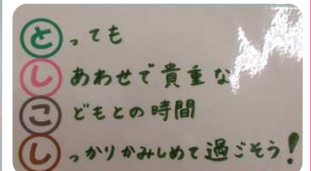 とっても
しあわせで貴重な
こどもとの時間
しっかりかみしめて過ごそう!